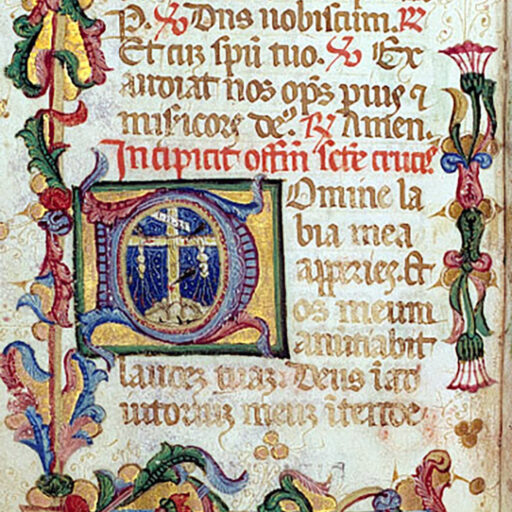 P. ℣ Dns uobiscum. ℟
Et cuz spu tuo. ℣ Ex
audiat nos ops pius ⁊
misicors de9. ℟ Amen.
Incipit offm scte crucis
Domine la
bia mea
apperiez. Et
os meum
anūtiabit
laudez tuaz. Deus ī ad
iutoriuz meuz ītende